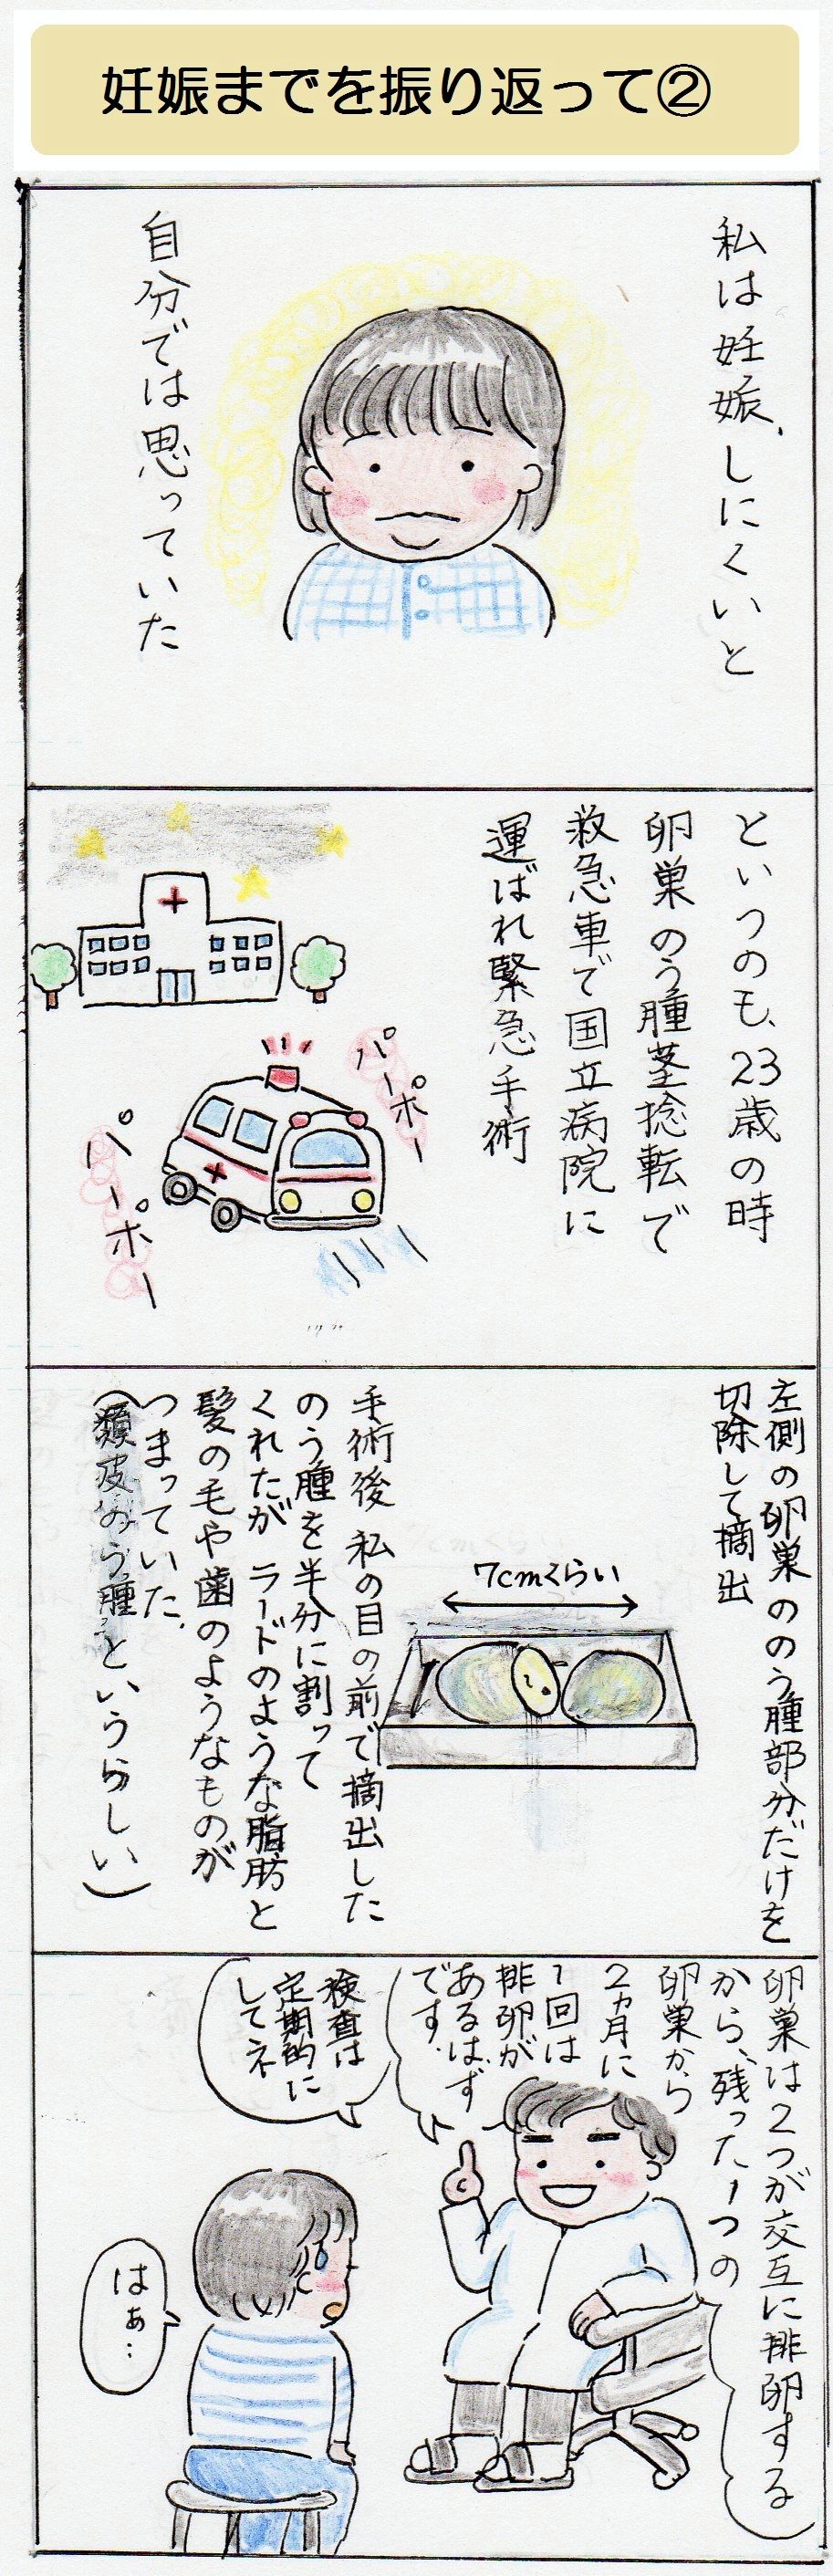 妊娠までを振り返って②
私は妊娠しにくいと
自分では思っていた
というのも、23歳の時
卵巣のう腫茎捻転で
救急車で国立病院に
運ばれ緊急手術
パーポー
パーポー
左側の卵巣ののう腫部分だけを
切除して摘出
7cmくらい
手術後 私の目の前で摘出した
のう腫を半分に割って
くれたが ラードのような脂肪と
髪の毛や歯のようなものが
つまっていた。
(類皮のう腫というらしい)
卵巣は2つが交互に排卵する
から、残った1つの
卵巣から
2ヵ月に
1回は
排卵が
あるはず
です。
検査は
定期的に
してネ
はぁ…